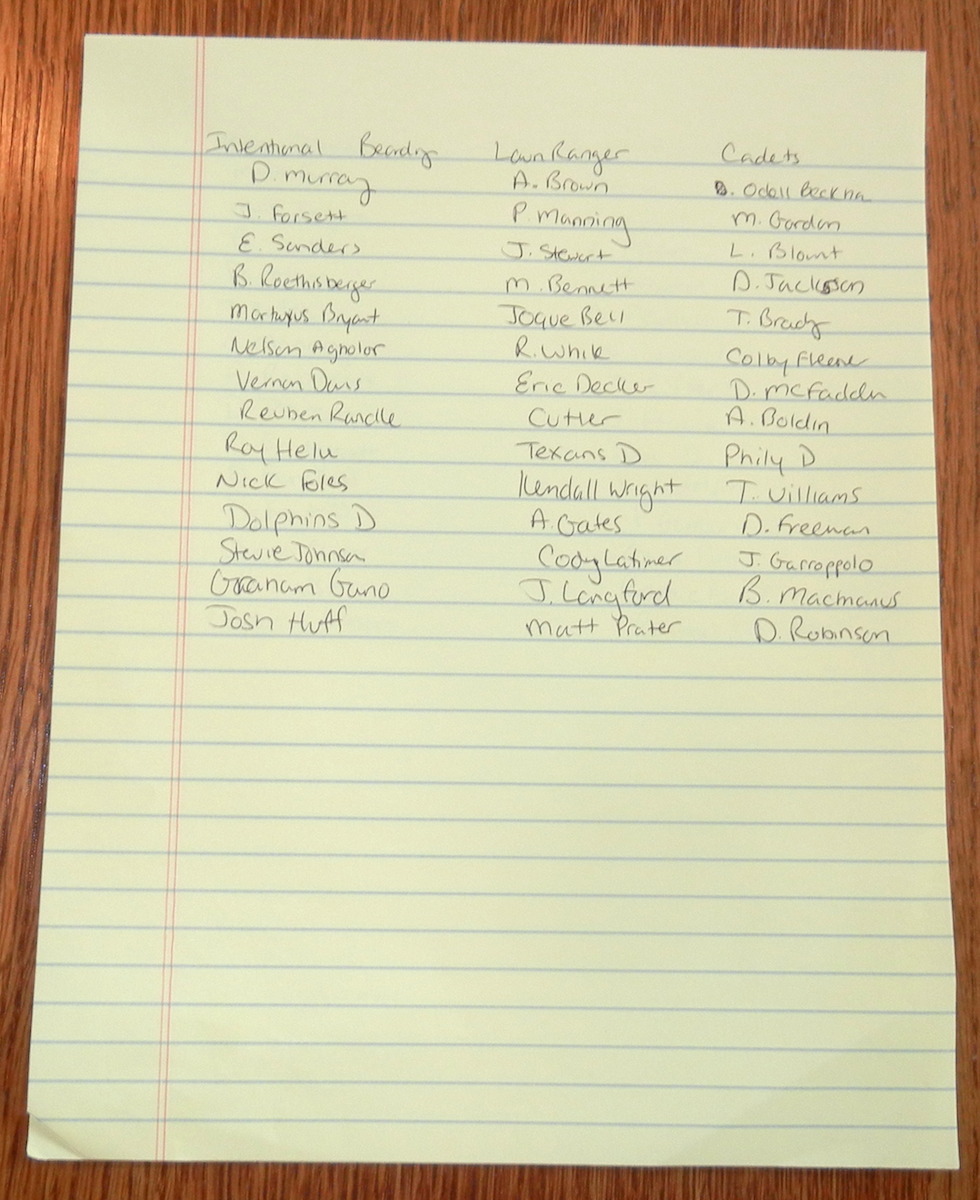 Intentional Beardig LawnRanger Cadets
D. Murray A. Brown B. Odell Beckna
J. Forsett P. Manning M. Gordon
E. Sanders J. Stewart L. Blount
B. Roethisberger M. Bennett D. Jackson
Martavus Bryant Joque Bell T. Brady
Nelson Agholor R. White Colby Fleener
Vernon Davis Eric Decker D. McFadden
Reuben Randle Cutler A. Boldin
Roy Helu Texans D Phily D
Nick Foles Kendall Wright T. Williams
Dolphins D A. Gates D. Freeman
Stevie Johnson Cody Latimer J. Garroppolo
Graham Gano J. Langford B. Macmanus
Josh Huff Matt Prater D. Robinson